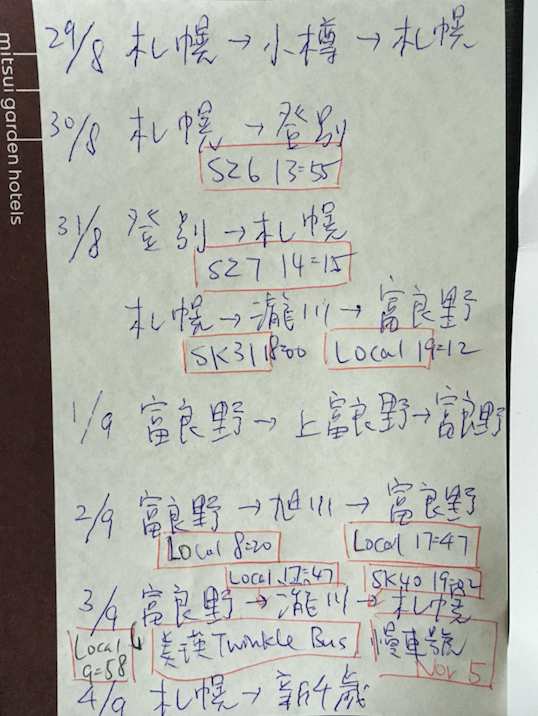 mitsui garden hotels
29/8 札幌→小樽→札幌
30/8 札幌→登別
SZ6 13=55
31/8 登別→札幌
SZ7 14=15
札幌→瀧川→富良野
SK31 18=00 Local 19=12
1/9 富良野→上富良野→富良野
2/9 富良野→旭川→富良野
Local 8=20 Local 17=47
Local 17:47 SK40 19=02
3/9 富良野→瀧川→札幌
Local 9=58 美瑛Twinkle Bus 慢車號
Nor 5
4/9 札幌→新千歲